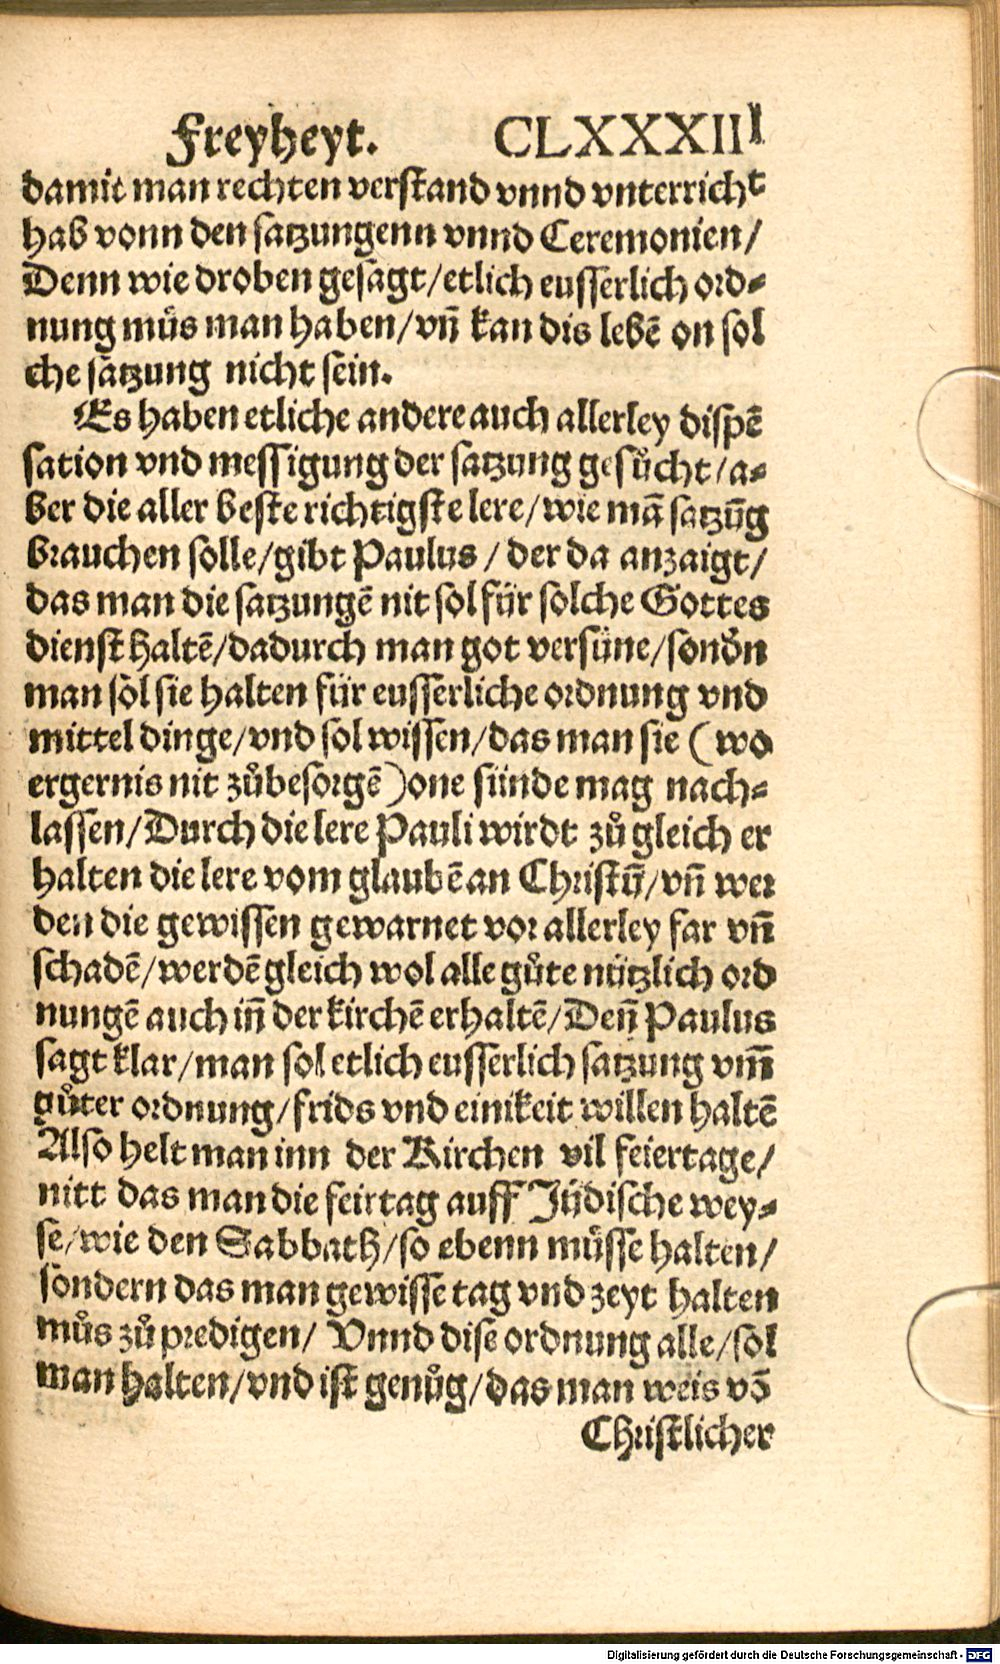 Freyheyt. CLXXXIII
damit man rechten verstand vnnd vnterricht
hab vonn den satzungenn vnnd Ceremonien/
Denn wie droben gesagt/etlich eusserlich ord-
nung můs man haben/vñ kan dis lebē on sol
che satzung nicht sein.
Es haben etliche andere auch allerley dispē
sation vnd messigung der satzung gesůcht/a-
ber die aller beste richtigste lere/wie mā satzūg
brauchen solle/gibt Paulus/der da anzaigt/
das man die satzungē nit sol für solche Gottes
dienst haltē/dadurch man got versüne/sondn
man sol sie halten für eusserliche ordnung vnd
mittel dinge/vnd sol wissen/das man sie (wo
ergernis nit zůbesorgē) one sünde mag nach-
lassen/Durch die lere Pauli wirdt zů gleich er
halten die lere vom glaubē an Christū/vñ wer
den die gewissen gewarnet vor allerley far vñ
schadē/werdē gleich wol alle gůte nützlich ord
nungē auch iñ der kirchē erhaltē/Deñ Paulus
sagt klar/man sol etlich eusserlich satzung vm̄
gůter ordnung/frids vnd einikeit willen haltē
Also helt man inn der Kirchen vil feiertage/
nitt das man die feirtag auff Jüdische wey-
se/wie den Sabbath/so ebenn müsse halten/
sondern das man gewisse tag vnd zeyt halten
můs zů predigen/ Vnnd dise ordnung alle/sol
man halten/vnd ist genůg/das man weis vō
Christlicher
Digitalisierung gefördert durch die Deutsche Forschungsgemeinschaft - DFG